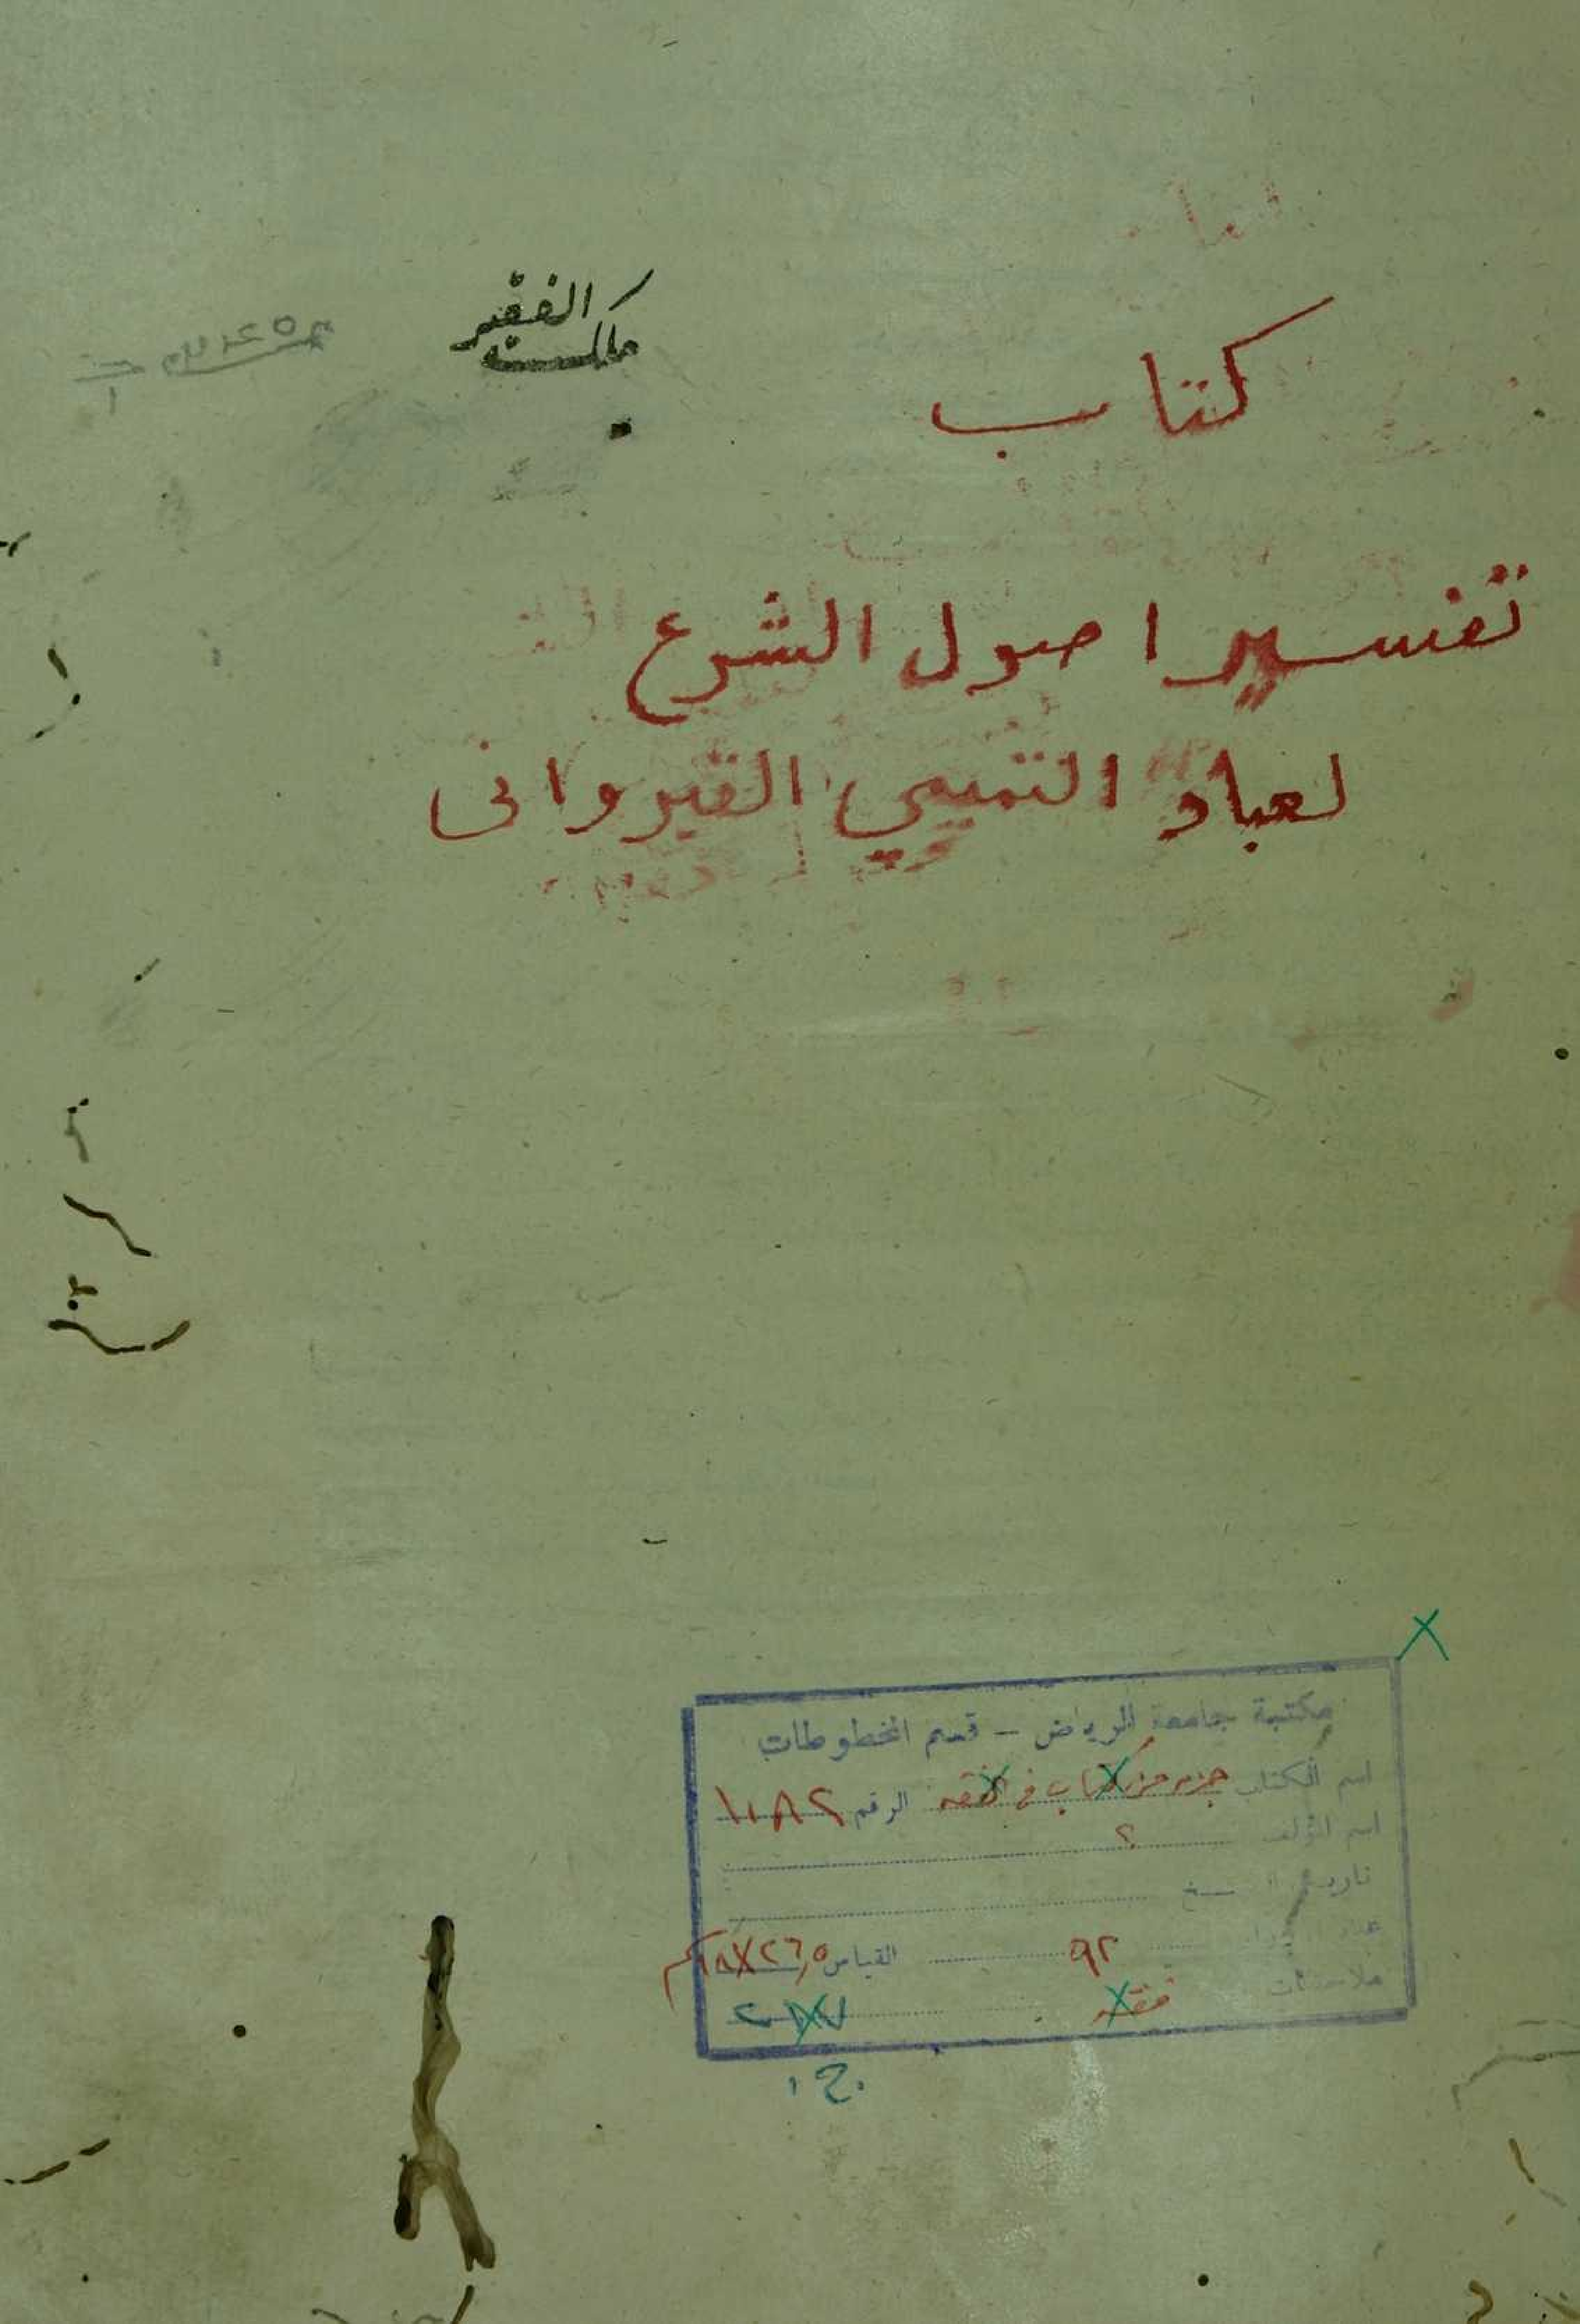 الفقير
ملكه
كتاب
تفسير اصول الشرع
لعباد التميمي القيرواني
مكتبة جامعة الرياض – قسم المخطوطات
اسم الكتاب جزء من كتاب في الفقه الرقم ١١٨٢
اسم المؤلف ؟
تاريخ النسخ
٩٢ القياس ٢٦,٥×١٨ سم
ملاحظات فقه